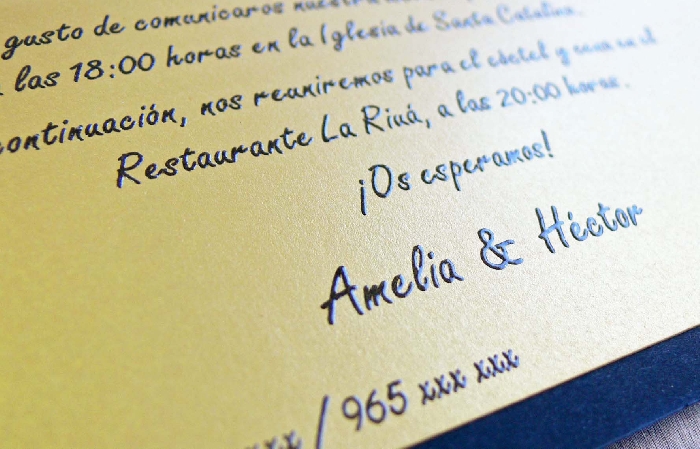 gusto de comunicaros nuestra
las 18:00 horas en la Iglesia de Santa Catalina.
continuación, nos reuniremos para el cóctel y cena en el
Restaurante La Riuá, a las 20:00 horas.
¡Os esperamos!
Amelia & Héctor
xxx / 965 xxx xxx